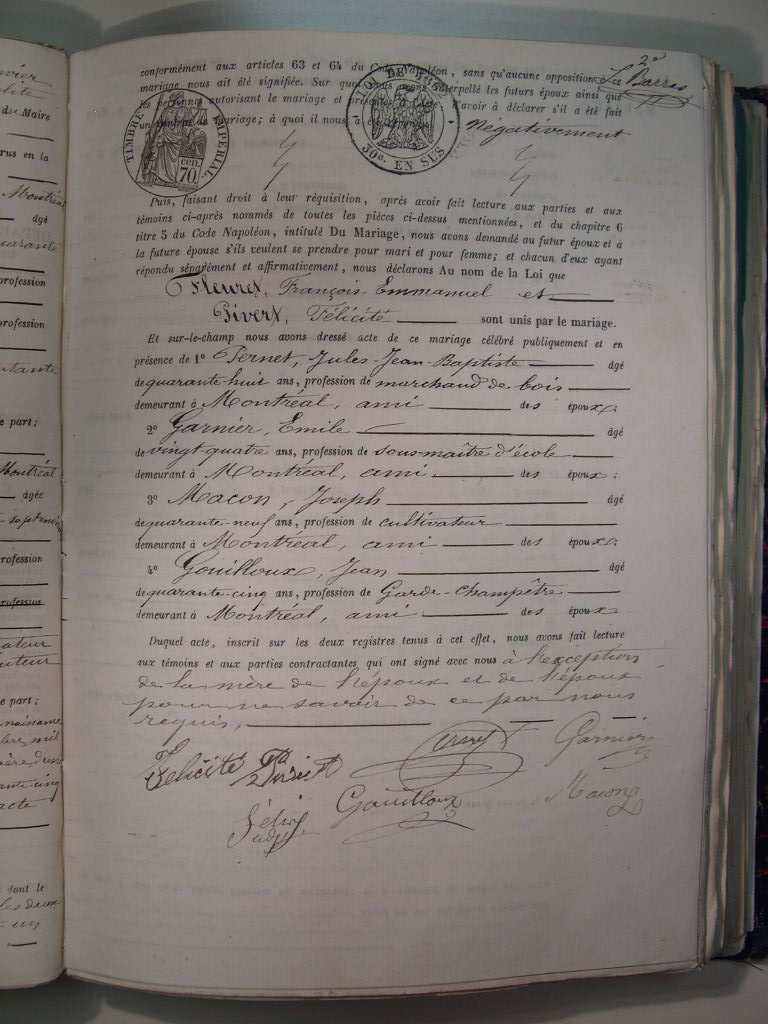 vier
du Maire
rus en la
Montréal
âgé
quarante
profession
profession
e part;
Montréal
âgée
profession
profession
e part;
acte
dont le
2º
La Barre
conformément aux articles 63 et 64 du Code Napoléon, sans qu'aucune opposition
mariage nous ait été signifiée. Sur quoi nous avons interpellé les futurs époux ainsi que
les personnes autorisant le mariage et présentes à l'acte d'avoir à déclarer s'il a été fait
un contrat de mariage; à quoi il nous a été répondu Négativement
TIMBRE IMPÉRIAL
70 cen
30c. EN SUS
Puis, faisant droit à leur réquisition, après avoir fait lecture aux parties et aux
témoins ci-après nommés de toutes les pièces ci-dessus mentionnées, et du chapitre 6
titre 5 du Code Napoléon, intitulé Du Mariage, nous avons demandé au futur époux et à
la future épouse s'ils veulent se prendre pour mari et pour femme; et chacun d'eux ayant
répondu séparément et affirmativement, nous déclarons Au nom de la Loi que
Fleuret, François-Emmanuel et
Pivert, Félicité sont unis par le mariage.
Et sur-le-champ nous avons dressé acte de ce mariage célébré publiquement et en
présence de 1º Pernet, Jules-Jean-Baptiste âgé
de quarante-huit ans, profession de marchand de bois
demeurant à Montréal, ami des époux;
2º Garnier, Emile âgé
de vingt-quatre ans, profession de sous-maître d'école
demeurant à Montréal, ami des époux;
3º Macon, Joseph âgé
de quarante-neuf ans, profession de cultivateur
demeurant à Montréal, ami des époux;
4º Gouilloux, Jean âgé
de quarante-cinq ans, profession de Garde-champêtre
demeurant à Montréal, ami des époux
Duquel acte, inscrit sur les deux registres tenus à cet effet, nous avons fait lecture
aux témoins et aux parties contractantes qui ont signé avec nous à l'exception
de la mère de l'époux et de l'époux
pour ne savoir de ce par nous
requis,
Félicité Pivert Garnier
Gouilloux Macon